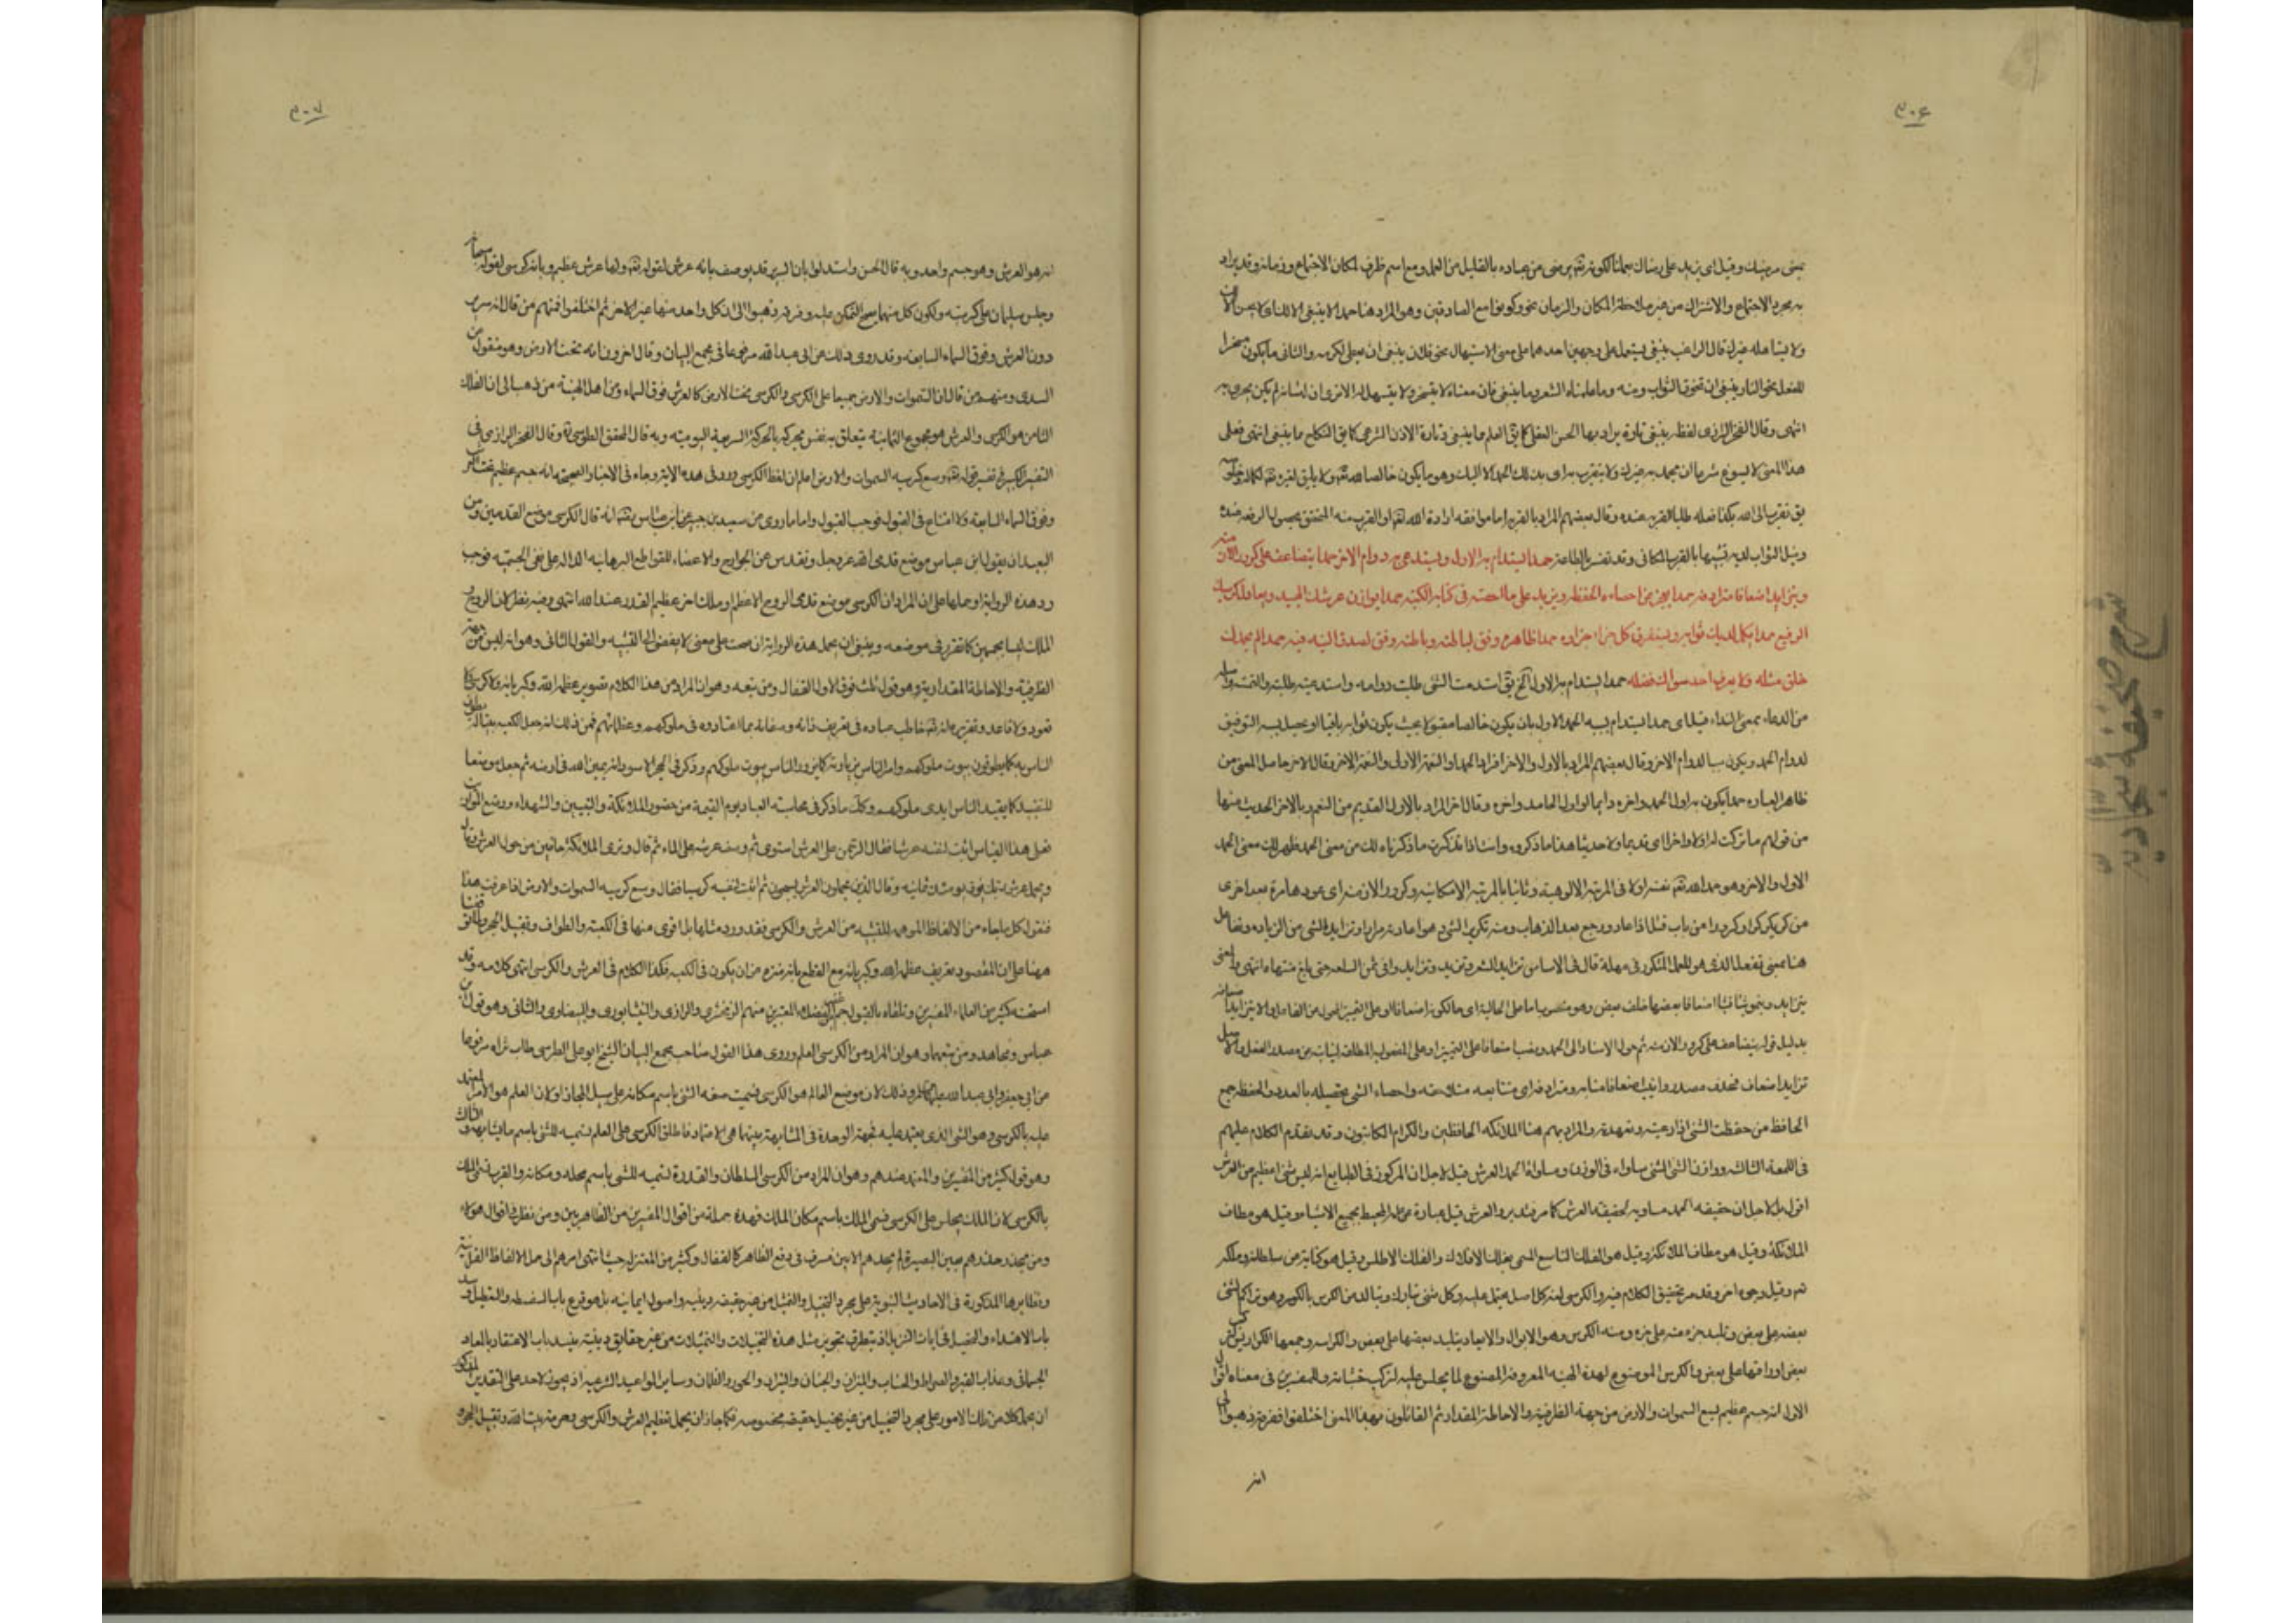 ٣٠۶
بمعنى مرضيك وقيل اى يزيد على رضاك عملنا لكونه تعالى يرضى من عباده بالقليل من العمل ومع اسم ظرف لمكان الاجتماع وزمانه وقد يراد
به مجرد الاجتماع والاشتراك من غير ملاحظة المكان والزمان نحو وكونوا مع الصادقين وهو المراد هنا حمدا لا ينبغى الا لك اى لا يحسن الا لك
ولا يتاهله غيرك قال الراغب ينبغى يستعمل على وجهين احدهما على معنى الاستيهال نحو فلان ينبغى ان يعطى لكرمه والثانى ما يكون مسخرا
للفعل نحو النار ينبغى ان تحرق الثواب ومنه وما علمناه الشعر وما ينبغى فان معناه لا يتسخر ولا يتسهل له الا ترى ان لسانه لم يكن يجرى به
انتهى وقال الفخر الرازى لفظه ينبغى تارة يراد بها الحسن العقلى كما يق العلم ما ينبغى وتارة الاذن الشرعى كما يق النكاح مما ينبغى انتهى فعلى
هذا المعنى لا يسوغ شرعا ان يحمد به غيرك ولا يتقرب به اى بذلك الحمد الا اليك وهو ما يكون خالصا لله تعالى ولا يليق لغيره تعالى
يق تقرب الى الله بكذا فعله طلبا لقربه عنده وقال بعضهم المراد بالقرب اما موافقه ارادة الله تعالى او القرب منه المتحقق بحصول الرفعه عنده
ونيل الثواب لديه تشبيها بالقرب المكانى وقد تفسر بالطاعة حمدا يستدام به الاول ويستدعى به دوام الاخر حمدا يتضاعف على كرور الازمنه
ويتزايد اضعافا مترادفه حمدا يعجز عن احصاءه الحفظه ويزيد على ما احصته فى كتابك الكتبه حمدا يوازن عرشك المجيد ويعادل كرسيك
الرفيع حمدا يكمل لديك ثوابه ويستغرق كل جزاء جزاؤه حمدا ظاهره وفق لباطنه وباطنه وفق لصدق النيه فيه حمدا لم يحمدك
خلق مثله ولا يعرف احد سواك فضله حمدا يستدام به الاول الخ يق استدمت الشئ طلبت دوامه واستدعيته طلبته والتمسته
من الدعاء بمعنى النداء قيل اى حمدا يستدام بسببه الحمد الاول بان يكون خالصا مقبولا بحيث يكون ثوابه باقيا او يحصل بسببه التوفيق
لدوام الحمد ويكون سببا لدوام الاخر وقال بعضهم المراد بالاول والاخر افراد الحمد او النعمة الاولى والنعمة الاخرى وقال الاخر حاصل المعنى من
ظاهر العباره حمدا يكون به اول الحمد واخره دائما اول الحامد واخره وقال اخر المراد بالاول القديم من النعم وبالاخر الحديث منها
من قولهم ما تركت له اولا ولا اخرا اى قديما ولا حديثا هذا ما ذكروه وانت اذا تذكرت ما ذكرناه لك من معنى الحمد ظهر لك معنى الحمد
الاول والاخر وهو حمد الله تعالى نفسه اولا فى المرتبه الالوهيه وثانيا بالمرتبه الامكانيه وكرور الازمنه اى عودها مرة بعد اخرى
من كر يكر كرا وكرورا من باب قتل اذا عاد ورجع بعد الذهاب ومنه تكرير الشئ وهو اعادته مرارا وتزايد الشئ من الزياده وتفاعل
هنا بمعنى تفعل الذى هو للعمل المتكرر فى مهلة قال فى الاساس تزايد السعر وتزيد وتزايدوا فى ثمن السلعه حتى بلغ منتهاه انتهى والمعنى
يتزايد وينمو شيئا فشيئا اضعافا بعضها خلف بعض وهو منصوب اما على الحالية اى حالكونه اضعافا او على التميز المحول من الفاعل والاصل
بدليل قوله يتضاعف على كرور الازمنه ثم حول الاسناد الى الحمد ونصب اضعافا على التمييز او على المفعوليه المطلقه لنيابته عن مصدر الفعل والاصل
تزايد اضعاف فحذف مصدره وانيب اضعافا منابه ومترادفه اى متتابعه متلاحقه واحصاء الشئ تحصيله بالعدد والحفظه جمع
الحافظ من حفظت الشئ اذا رعيته وتعهدته والمراد بهم هنا الملائكه الحافظين والكرام الكاتبون وقد تقدم الكلام عليهم
فى اللمعة الثالثه ووازن الشئ الشئ ساواه فى الوزن ومساواة الحمد العرش قيل لاجل ان المركوز فى الطبايع انه ليس شئ اعظم من العرش
اقول بل لاجل ان حقيقه الحمد مساويه لحقيقه العرش كما مر فتدبر والعرش قيل عبارة عن علمه المحيط بجميع الاشياء وقيل هو مطاف
الملائكة وقيل هو مطاف الملائكه وقيل هو الفلك التاسع المسمى بفلك الافلاك والفلك الاطلس وقيل هو كنايه من سلطانه وملكه
تعالى وقيل وجوه اخر وقد مر تحقيق الكلام فيه والكرسى لغة كل اصل يعتمل عليه وكل شئ تبارك وتمالد من الكرس بالكسر وهو تراكم الشئ
بعضه على بعض وتلبد جزء منه على جزء ومنه الكرس وهو الابوال والابعار يتلبد بعضها على بعض والكراسه وجمعها الكراريس لتركب
بعض اوراقها على بعض والكرسى الموضوع لهذه الهيئه المعروفه المصنوع لما يجلس عليه لتركب خشباته وللمفسرين فى معناه اقوال
الاول انه جسم عظيم يسع السموات والارض من جهة الظرفية والاحاطة المقداريه ثم القائلون بهذا المعنى اختلفوا ففرقة ذهبوا الى
انه
٣٠٧
انه هو العرش وهو جسم واحد وبه قال الحسن واستدلوا بان السرير قد يوصف بانه عرش لقوله تعالى ولها عرش عظيم وبانه كرسى لقوله
وجلس سليمان على كرسيه ولكون كل منهما يصح التمكن عليه وفرقة ذهبوا الى ان كل واحد منهما غير الاخر ثم اختلفوا فمنهم من قال انه سرير
دون العرش وفوق السماء السابعه وقد روى ذلك عن ابى عبد الله مرفوعا فى مجمع البيان وقال اخرون انه تحت الارض وهو منقول عن
السدى ومنهم من قال ان السموات والارض جميعا على الكرسى والكرسى تحت الارض كالعرش فوق السماء ومن اهل الهيئة من ذهب الى ان الفلك
الثامن هو الكرسى والعرش هو مجموع الثمانية يتعلق به نفس يحركه بالحركة السريعة اليوميه وبه قال المحقق الطوسى ره وقال الفخر الرازى فى
التفسير الكبير فى تفسير قوله تعالى وسع كرسيه السموات والارض اعلم ان لفظ الكرسى ورد فى هذه الاية وجاء فى الاخبار الصحيحه انه جسم عظيم تحت العرش
وفوق السماء السابعة ولا امتناع فى القول به فوجب القبول واما ما روى من سعيد بن جبير عن ابن عباس انه قال الكرسى موضع القدمين ومن
البعيد ان يقول ابن عباس موضع قدمى الله عز وجل وتقدس عن الجوارح والاعضاء للقواطع البرهانيه الداله على نفى الجسميه فوجب
رد هذه الرواية او حملها على ان المراد ان الكرسى موضع قدمى الروح الاعظم او ملك اخر عظيم القدر عند الله انتهى وفيه نظر لان الروح و
الملك ليسا بجسمين كما تقرر فى موضعه وينبغى ان يحمل هذه الرواية ان صحت على معنى لا يفضى الى التشبيه والقول الثانى وهو انه ليس من جهة
الظرفية والاحاطة المقدارية وهو قول ثلث فرق الاول القفال ومن تبعه وهو ان المراد من هذا الكلام تصوير عظمة الله وكبريائه ولا كرسى ولا
قعود ولا قاعد وتقريره انه تعالى خاطب عباده فى تعريف ذاته وصفاته بما اعتادوه فى ملوكهم وعظمائهم فمن ذلك انه جعل الكعبه بيتا له يطوف
الناس به كما يطوفون ببيوت ملوكهم وامر الناس بزيارته كما يزور الناس بيوت ملوكهم وذكر فى الحجر الاسود انه يمين الله فى ارضه ثم جعل موضعا
للتقبيل كما يقبل الناس ايدى ملوكهم وكذلك ما ذكر فى محاسبه العباد يوم القيمه من حضور الملائكة والنبيين والشهداء ووضع الموازين
فعلى هذا القياس اثبت لنفسه عرشا فقال الرحمن على العرش استوى ثم وصف عرشه على الماء ثم قال وترى الملائكة حافين من حول العرش وقال
ويحمل عرش ربك فوقهم يومئذ ثمانيه وقال الذين يحملون العرش يسبحون ثم اثبت لنفسه كرسيا فقال وسع كرسيه السموات والارض اذا عرفت هذا
فنقول كل ما جاء من الالفاظ الموهمه للتشبيه من العرش والكرسى فقد ورد مثلها بل اقوى منها فى الكعبه والطواف وتقبيل الحجر
ههنا على ان المقصود تعريف عظمة الله وكبريائه مع القطع بانه منزه من ان يكون فى الكعبه فكذا الكلام فى العرش والكرسى انتهى كلامه وقد
استحسنه كثير من العلماء المفسرين وتلقاه بالقبول منهم الزمخشرى والرازى والنيشابورى والبيضاوى والثانى وهو قول ابن
عباس ومجاهد ومن تبعهما وهو ان المراد من الكرسى العلم وروى هذا القول صاحب مجمع البيان الشيخ ابو على الطبرسى طاب ثراه مرفوعا
من ابى جعفر وابى عبد الله عليهما السلم وذلك لان موضع العالم هو الكرسى فسميت صفه الشئ باسم مكانه على سبيل المجاز او لان العلم هو الامر المعتمد
عليه بالكرسى وهو الشئ الذى يعتمد عليه فجهة الوحدة فى المشابهة بينهما هى الاعتماد فاطلق الكرسى على العلم تسميه للشئ باسم ما يشابهه والثالث
وهو قول كثير من المفسرين والمعتمد عندهم وهو ان المراد من الكرسى السلطان والقدرة تسميه للشئ باسم محله ومكانه والعرب تسمى الملك
بالكرسى لان الملك يجلس على الكرسى فسمى الملك باسم مكان الملك فهذه جملة من اقوال المفسرين من الظاهريين ومن نظر فى اقوال هؤلاء
ومن يحذو حذوهم بعين البصيرة لم يجدهم الا بين مسرف فى دفع الظاهر كالقفال وكثير من المعتزله حيث انتهى امرهم الى حمل الالفاظ القرانية
ونظايرها المذكورة فى الاحاديث النبوية على مجرد التخيل والتمثيل من غير حقيقه دينيه واصول ايمانيه بل هو قرع باب السفسطه والتعطيل وسد
باب الاهتداء والتحصيل فى ايات التنزيل اذ يتطرق بتجويز مثل هذه التخيلات والتمثيلات من غير حقايق دينيه يفسد باب الاعتقاد بالمعاد
الجسمانى وعذاب القبر والصراط والحساب والميزان والجنان والنيران والحور والغلمان وساير المواعيد الشرعيه اذ يجوز لاحد على التقدير المذكور
ان يحمل كلا من تلك الامور على مجرد التخييل من غير تحصيل حقيقه مخصوصه فكما جاز ان يحمل تعظيم العرش والكرسى وحرمة بيت الله وتقبيل الحجر و
شرح صحيفه سجاديه